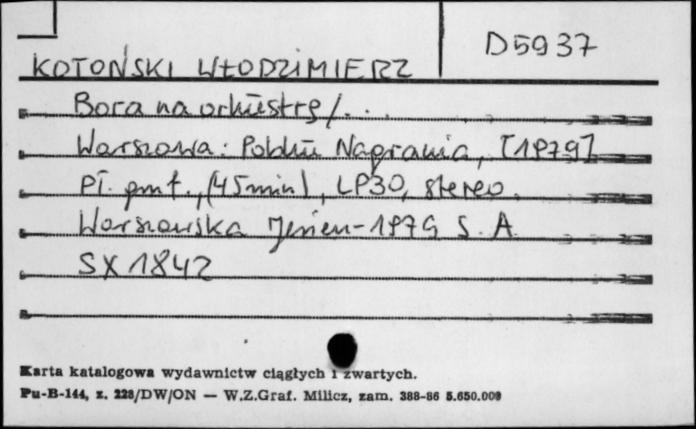 D5937
KOTOŃSKI WŁODZIMIERZ
Bora na orkiestrę / ...
Warszawa: Polskie Nagrania, [1979]
Pł. gmf., (45min), LP30, stereo.
Warszawska Jesień-1979 S. A.
SX1842
Karta katalogowa wydawnictw ciągłych i zwartych.
Pu-B-144, z. 228/DW/ON — W.Z.Graf. Milicz, zam. 388-86 5.650.000